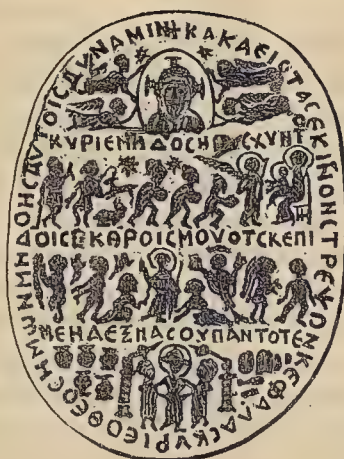 +ΚΑΚΑΕΙCΤΑCΕΚΙΝΟΝCΤΡΕΨΩΝΚΕΦΑΛΑCΚΥΡΙΕΟΘΕΟCΗΜΩΝΜΗΔΟΗCΑΥΤΟΙCΔΥΝΑΜΙΝ
ΚΥΡΙΕΜΗΔΟCΗ CΧΥΝΤ
ΔΟΙCΕΚΑΡΟΙCΜΟΥΟΤCΚΕΠΙ
ΜΕΝΔΕΞΠΑCΟΥΠΑΝΤΟΤΕΝ